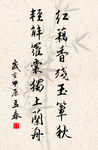 红藕香残玉簟秋
轻解罗裳独上兰舟
岁之甲辰立春